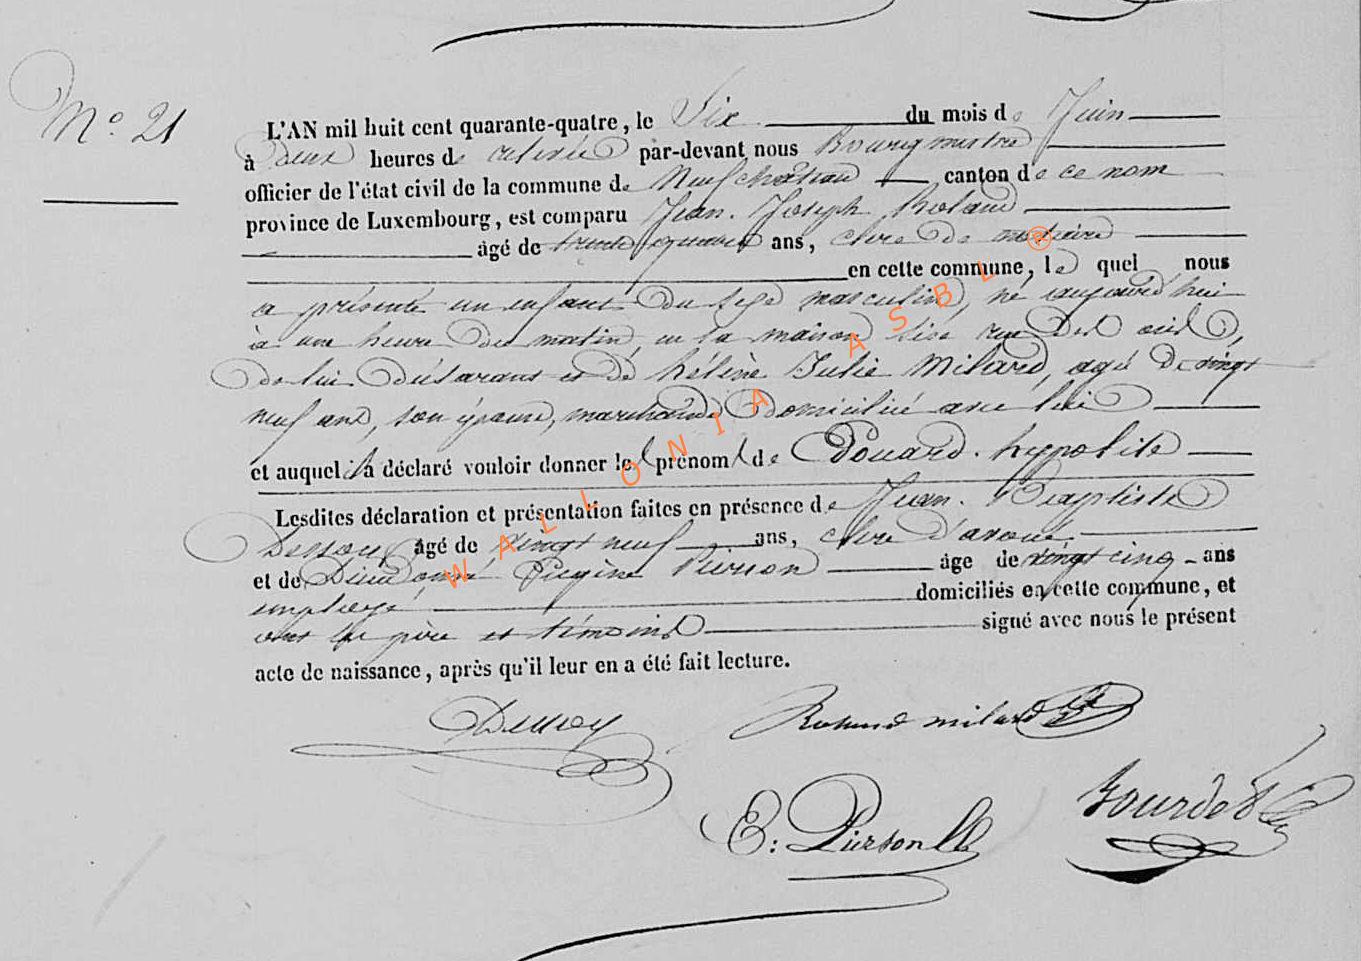 N° 21
L'AN mil huit cent quarante-quatre, le Six du mois de Juin
à deux heures de relevée par-devant nous Bourgmestre
officier de l'état civil de la commune de Neufchâteau canton de ce nom
province de Luxembourg, est comparu Jean Joseph Roland
âgé de trente quatre ans, clerc de notaire
en cette commune, lequel nous
a présenté un enfant du sexe masculin, né aujourd'hui
à une heure du matin en la maison sise rue
de lui déclarant et de hélène Julie Milard, agé de vingt
neuf ans, son épouse, marchande domicilié avec lui
et auquel il a déclaré vouloir donner les prénoms de Edouard. hypolite
Lesdites déclaration et présentation faites en présence de Jean. Baptiste
Dessoy âgé de vingt neuf ans, clerc d'avoué
et de Dieudonné Eugène Pierson âge de vingt cinq ans
employé domiciliés en cette commune, et
ont les père et témoins signé avec nous le présent
acte de naissance, après qu'il leur en a été fait lecture.
Dessoy Roland milard
E: Pierson
WALLONIA ASBL ®